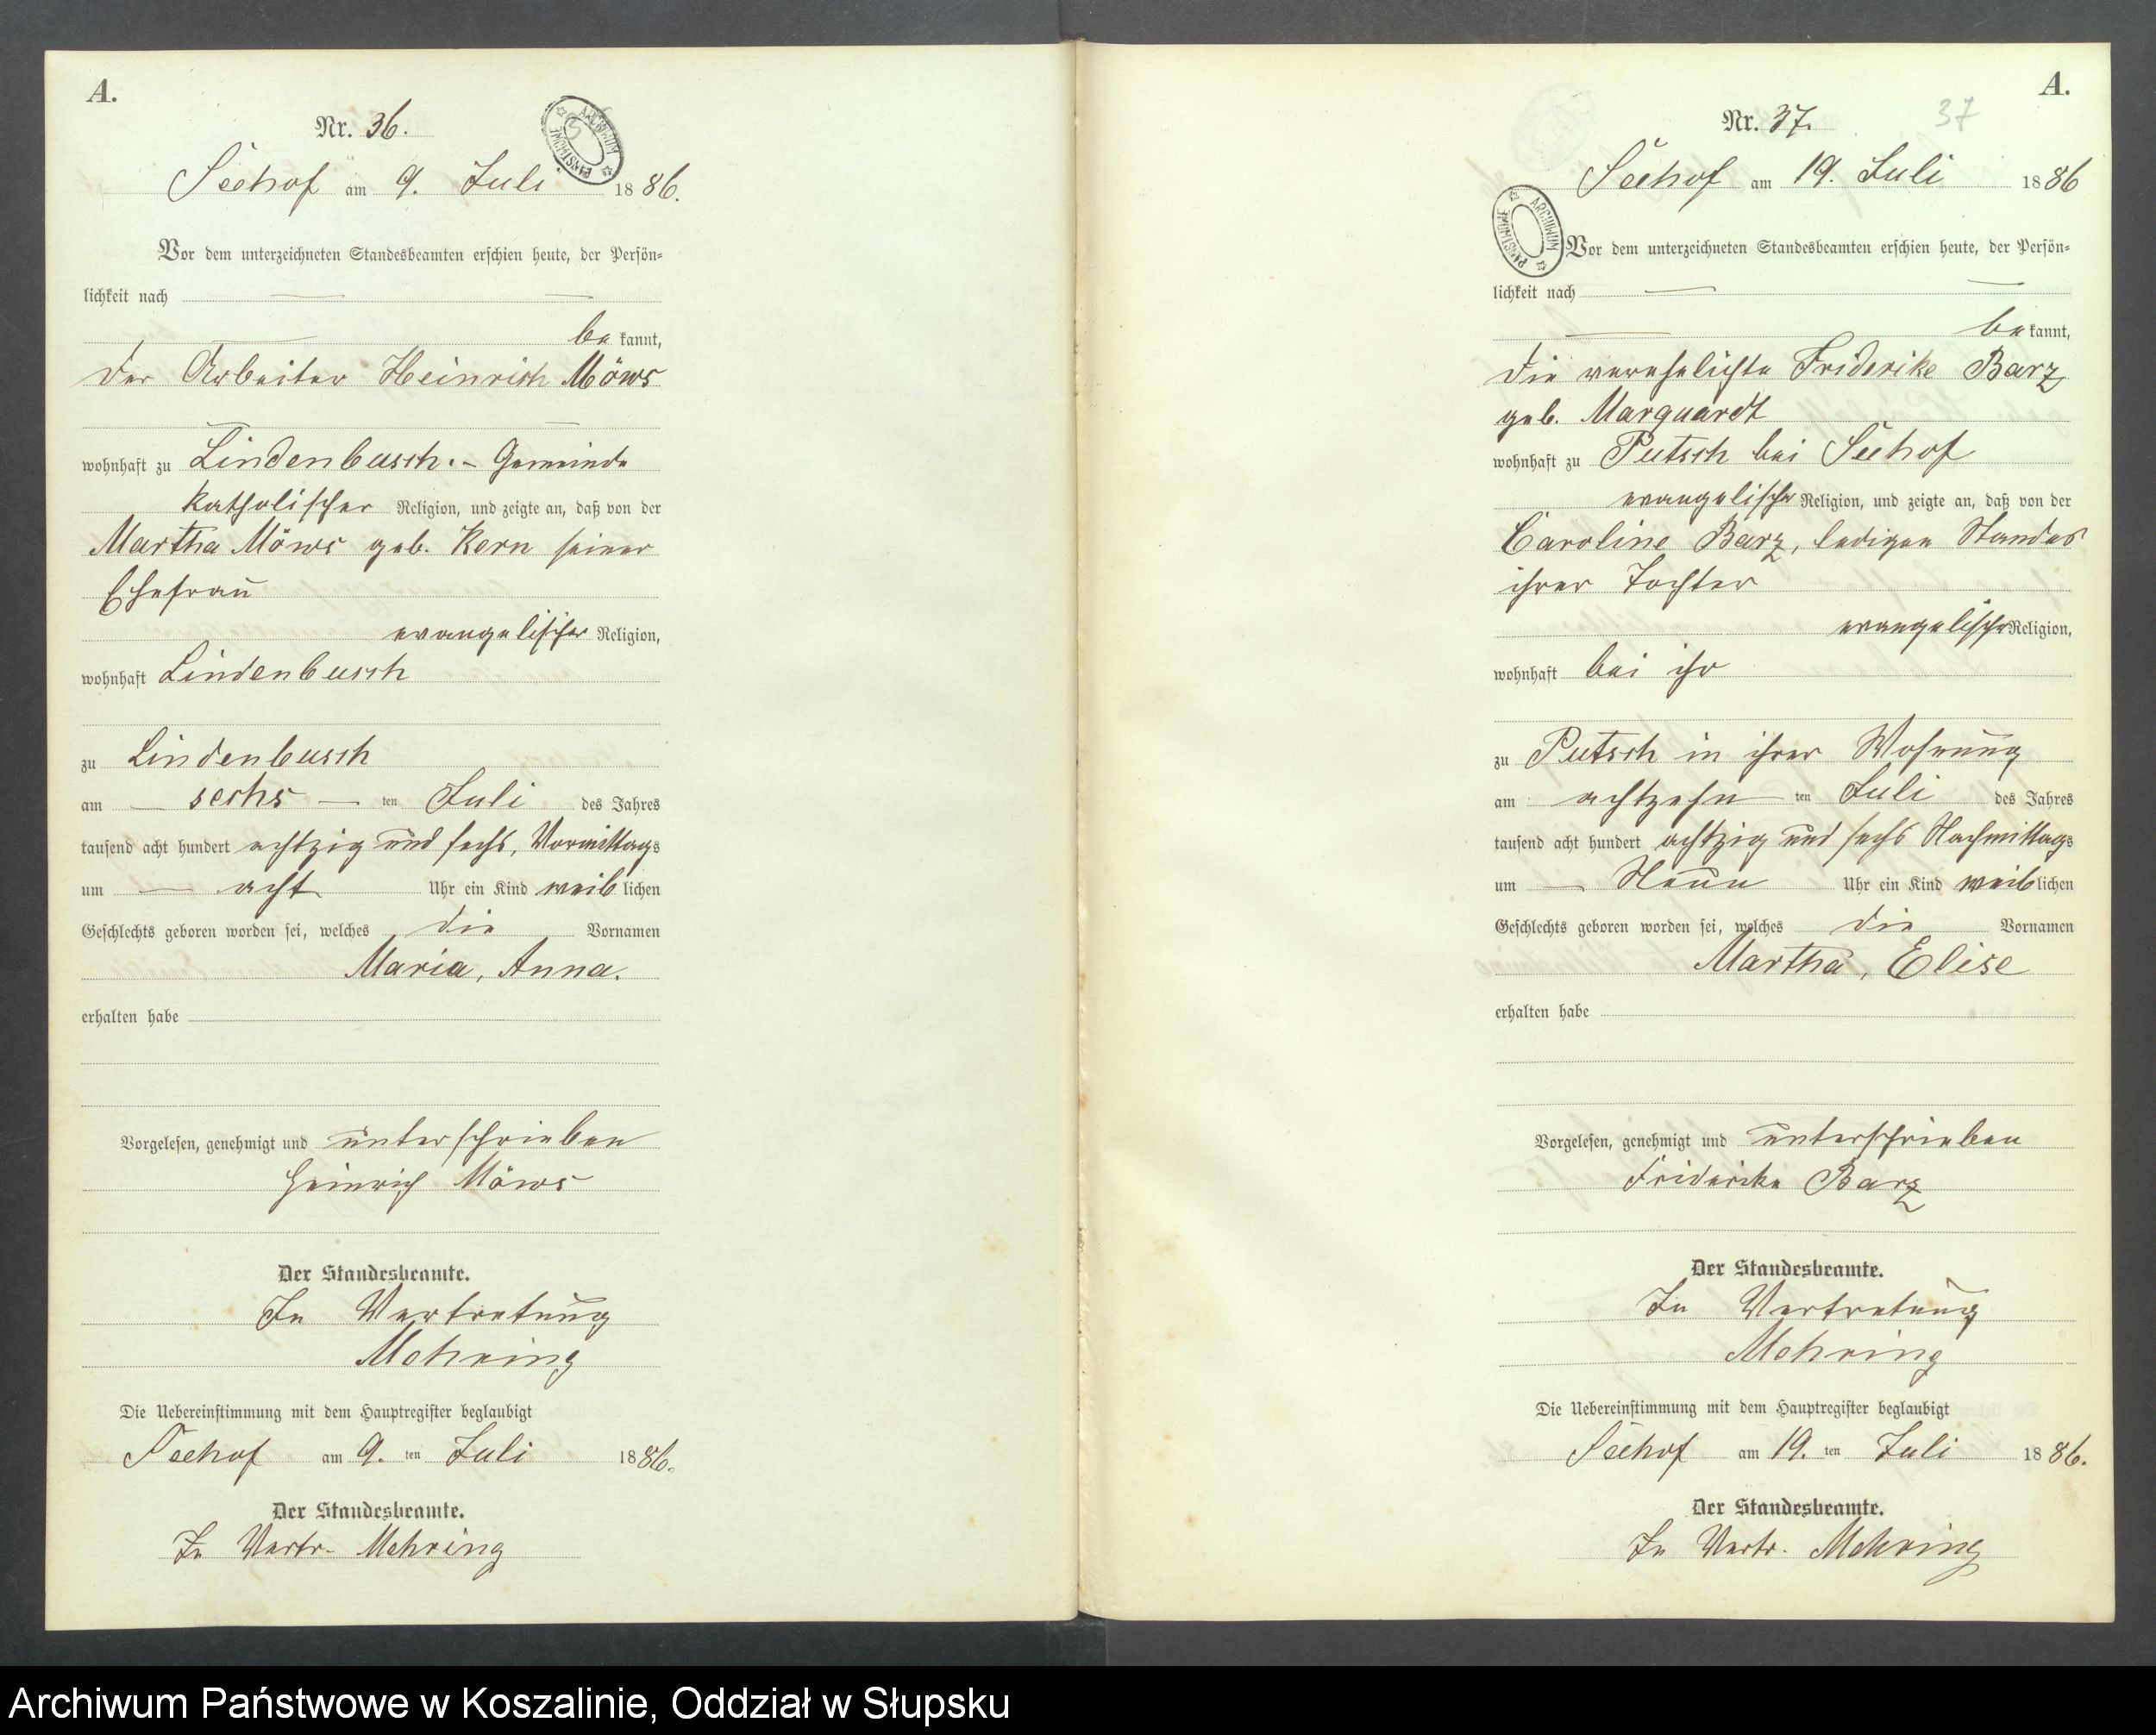 A.
Nr. 36.
ARCHIWUM PAŃSTWOWE
Seehof am 9. Juli 1886.
Vor dem unterzeichneten Standesbeamten erschien heute, der Persön-
lichkeit nach
be kannt,
der Arbeiter Heinrich Möws
wohnhaft zu Lindenbusch. - Gemeinde
katholischer Religion, und zeigte an, daß von der
Martha Möws geb. Kern seiner
Ehefrau
evangelischer Religion,
wohnhaft Lindenbusch
zu Lindenbusch
am sechs ten Juli des Jahres
tausend acht hundert achtzig und sechs, Vormittags
um acht Uhr ein Kind weiblichen
Geschlechts geboren worden sei, welches die Vornamen
Maria, Anna.
erhalten habe
Vorgelesen, genehmigt und unterschrieben
Heinrich Möws
Der Standesbeamte.
In Vertretung
Mehring
Die Uebereinstimmung mit dem Hauptregister beglaubigt
Seehof am 9. ten Juli 1886.
Der Standesbeamte.
In Vertr. Mehring
A.
Nr. 37. 37
Seehof am 19. Juli 1886
ARCHIWUM PAŃSTWOWE
Vor dem unterzeichneten Standesbeamten erschien heute, der Persön-
lichkeit nach
be kannt,
die verehelichte Friderike Barz
geb. Marquardt
wohnhaft zu Putsch bei Seehof
evangelischer Religion, und zeigte an, daß von der
Caroline Barz, ledigen Standes
ihrer Tochter
evangelischer Religion,
wohnhaft bei ihr
zu Putsch in ihrer Wohnung
am achtzehn ten Juli des Jahres
tausend acht hundert achtzig und sechs Nachmittags
um Neun Uhr ein Kind weiblichen
Geschlechts geboren worden sei, welches die Vornamen
Martha, Elise
erhalten habe
Vorgelesen, genehmigt und unterschrieben
Friderike Barz
Der Standesbeamte.
In Vertretung
Mehring
Die Uebereinstimmung mit dem Hauptregister beglaubigt
Seehof am 19. ten Juli 1886.
Der Standesbeamte.
In Vertr. Mehring
Archiwum Państwowe w Koszalinie, Oddział w Słupsku